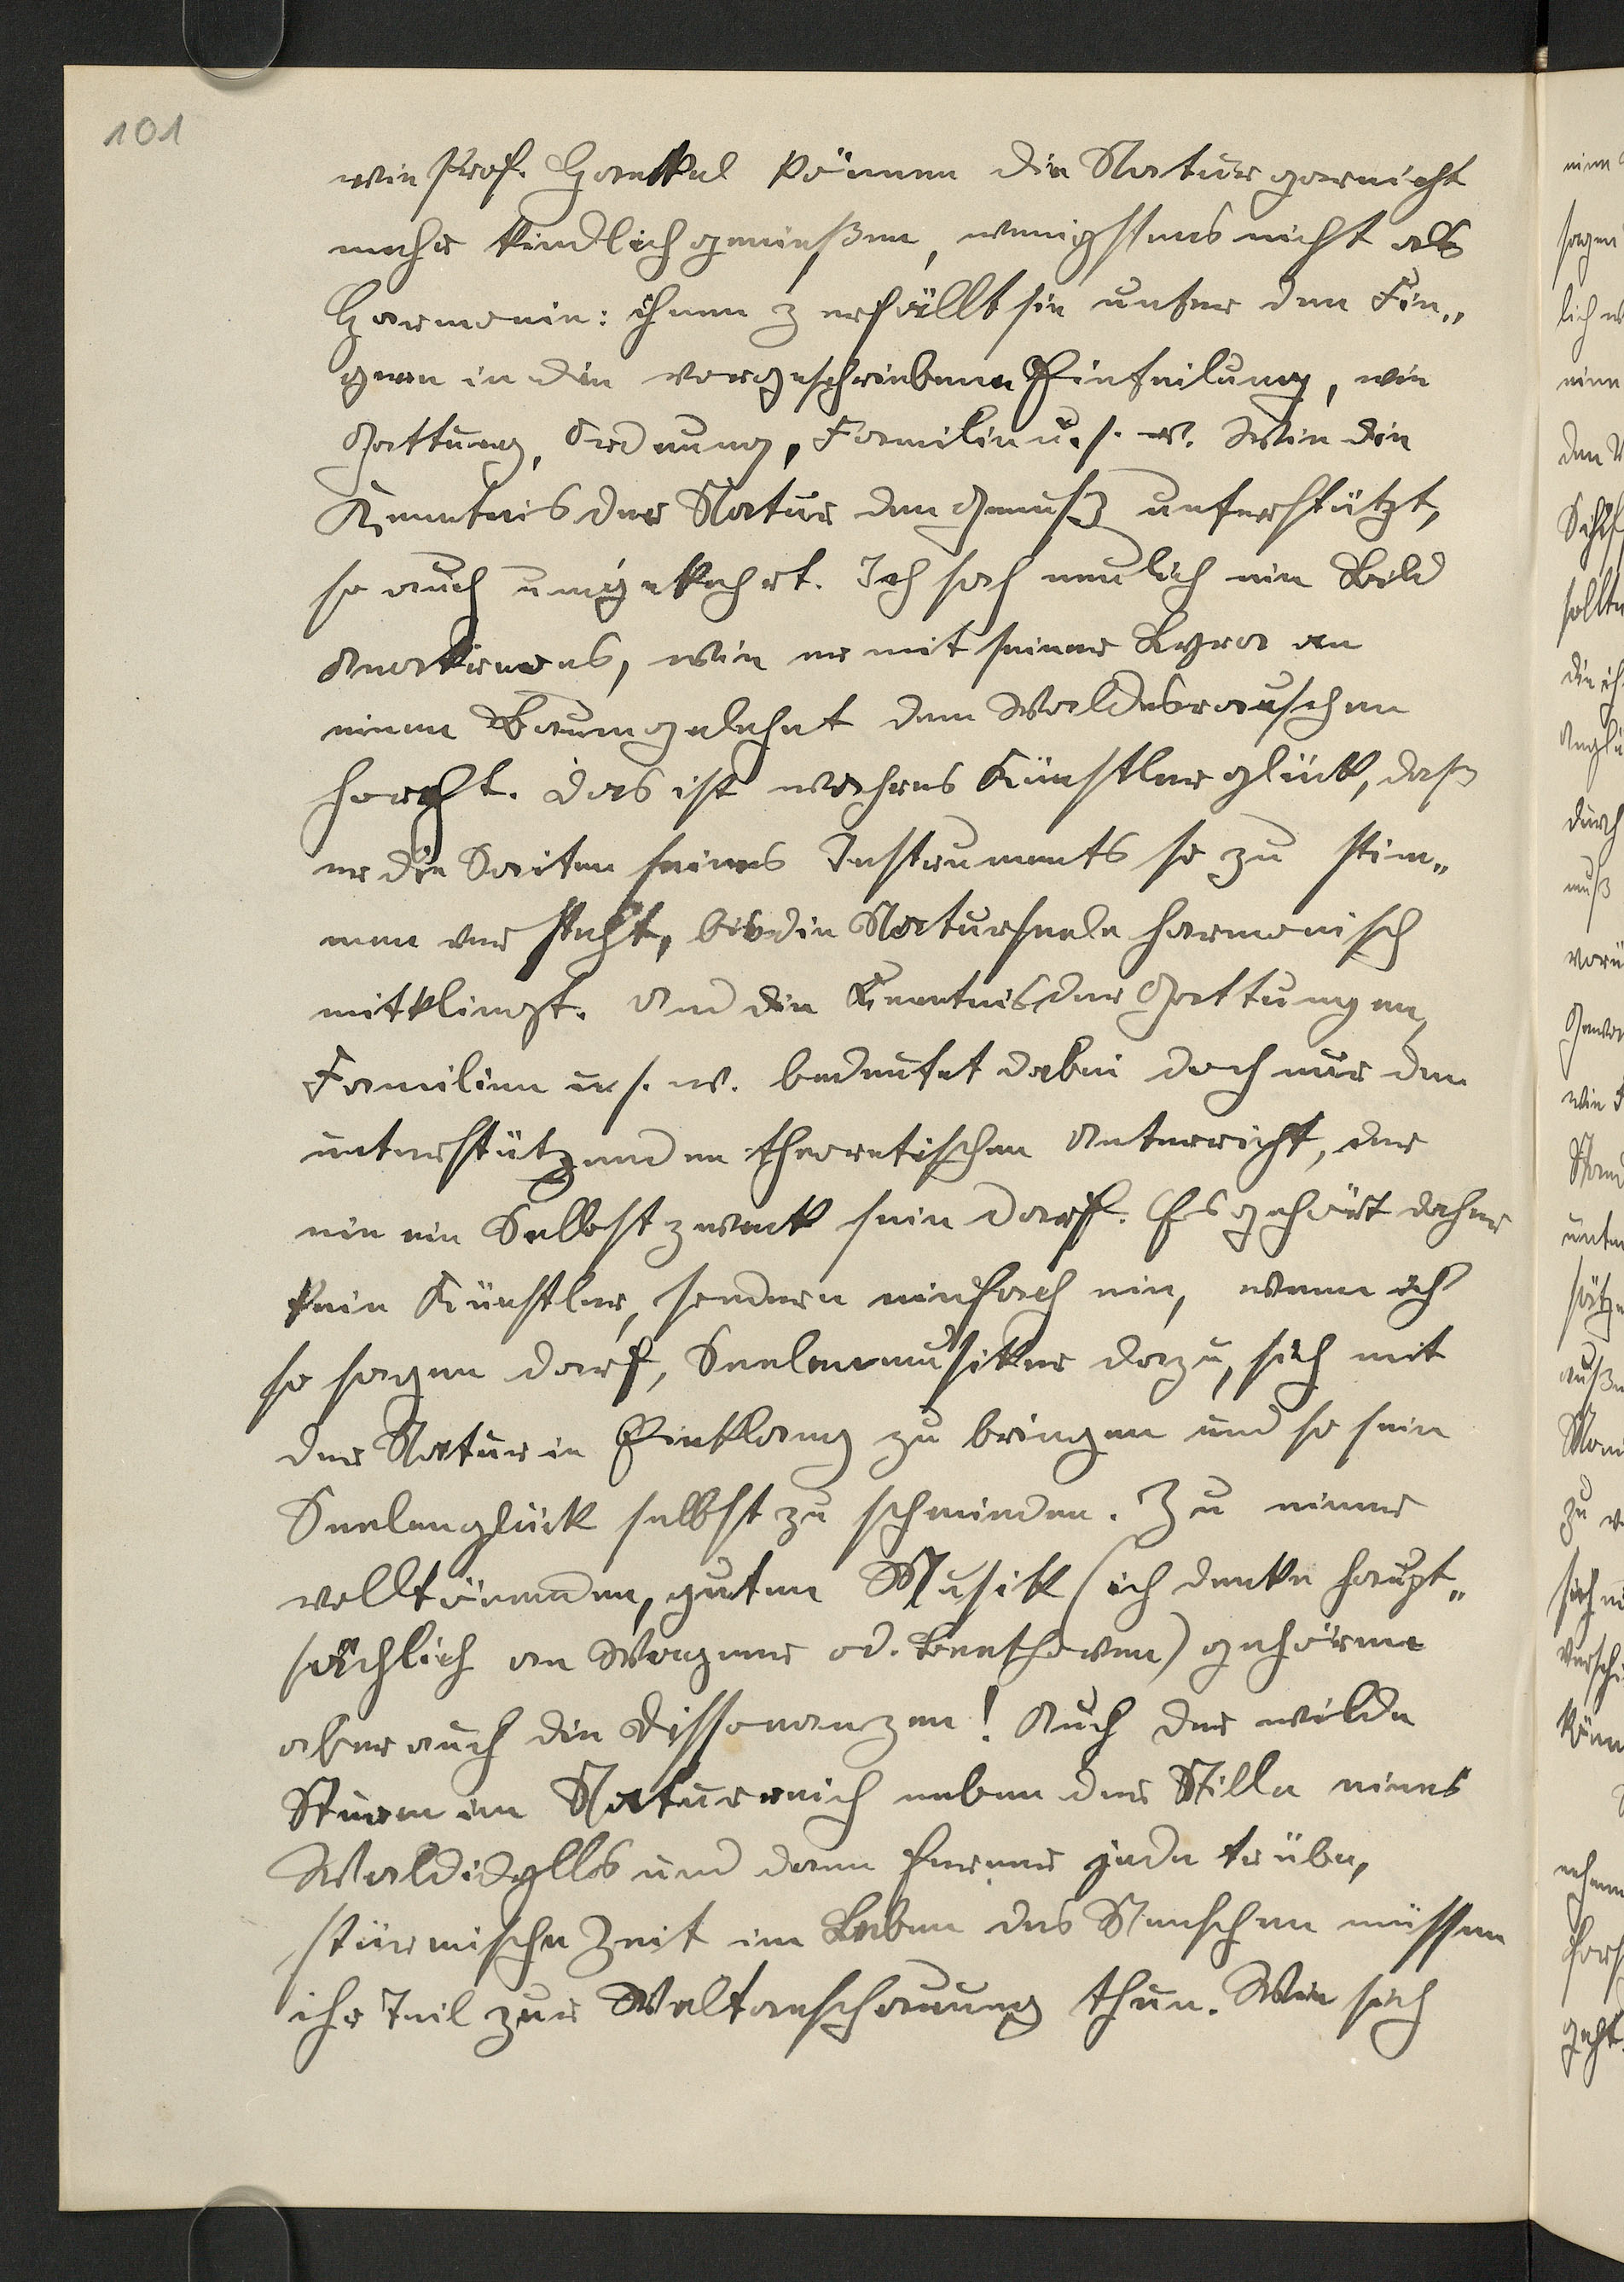 101
wie Prof. Haeckel können die Natur garnicht
mehr kindlich genießen, wenigstens nicht als
Harmonie: ihnen zerfällt sie unter den Fin„
gern in die vorgeschriebene Einteilung, wie
Gattung, Ordnung, Familie u. s. w. Wie die
Kenntnis der Natur den Genuß unterstützt,
so auch umgekehrt. Ich sah neulich ein Bild
Anakreons, wie er mit seiner Lyra an
einen Baum gelehnt dem Waldesrauschen
horcht. Das ist wahres Künstlerglück, daß
er die Saiten seines Instruments so zu stim„
men versteht, bis die Naturseele harmonisch
mitklingt. Und die Kenntnis der Gattungen,
Familien u. s. w. bedeutet dabei doch nur den
unterstützenden theoretischen Unterricht, der
nie ein Selbstzweck sein darf. Es gehört daher
kein Künstler, sondern einfach ein, wenn ich
so sagen darf, Seelenmusiker dazu, sich mit
der Natur in Einklang zu bringen und so sein
Seelenglück selbst zu schmieden. Zu einer
volltönenden, guten Musik (ich denke haupt„
sächlich an Wagner od. Beethoven) gehören
aber auch die Dissonanzen! Auch der wilde
Sturm im Naturreich neben der Stille eines
Waldidylls und dann ferner jede trübe,
stürmische Zeit im Leben des Menschen müssen
ihr Teil zur Weltanschauung thun. Wie sich